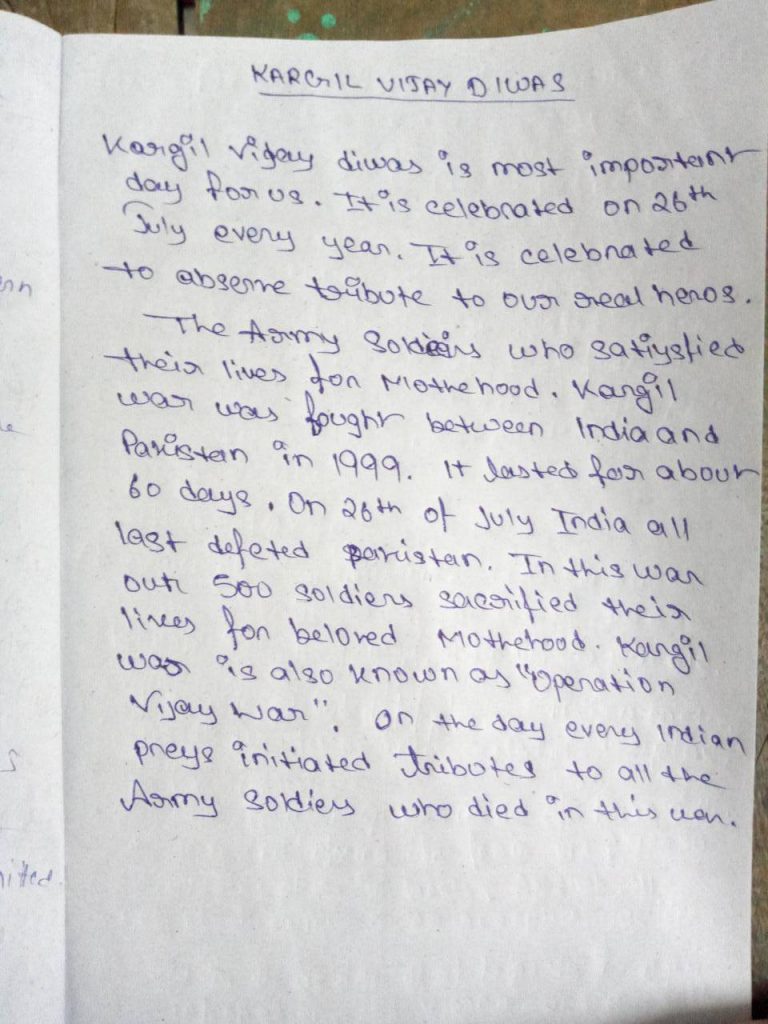 KARGIL VIJAY DIWAS
Kargil Vijay diwas is most important
day for us. It is celebrated on 26th
July every year. It is celebrated
to abserve tribute to our real heros.
The Army Soldiers who satiysfied
their lives for Mothehood. Kargil
war was fought between India and
Pakistan in 1999. It lasted for about
60 days. On 26th of July India all
last defeted pakistan. In this war
out 500 soldiers sacrified their
lives for beloved Mothehood. Kargil
war is also known as "Operation
Vijay War". On the day every Indian
preys initiated tributes to all the
Army Soldiers who died in this war.
nited